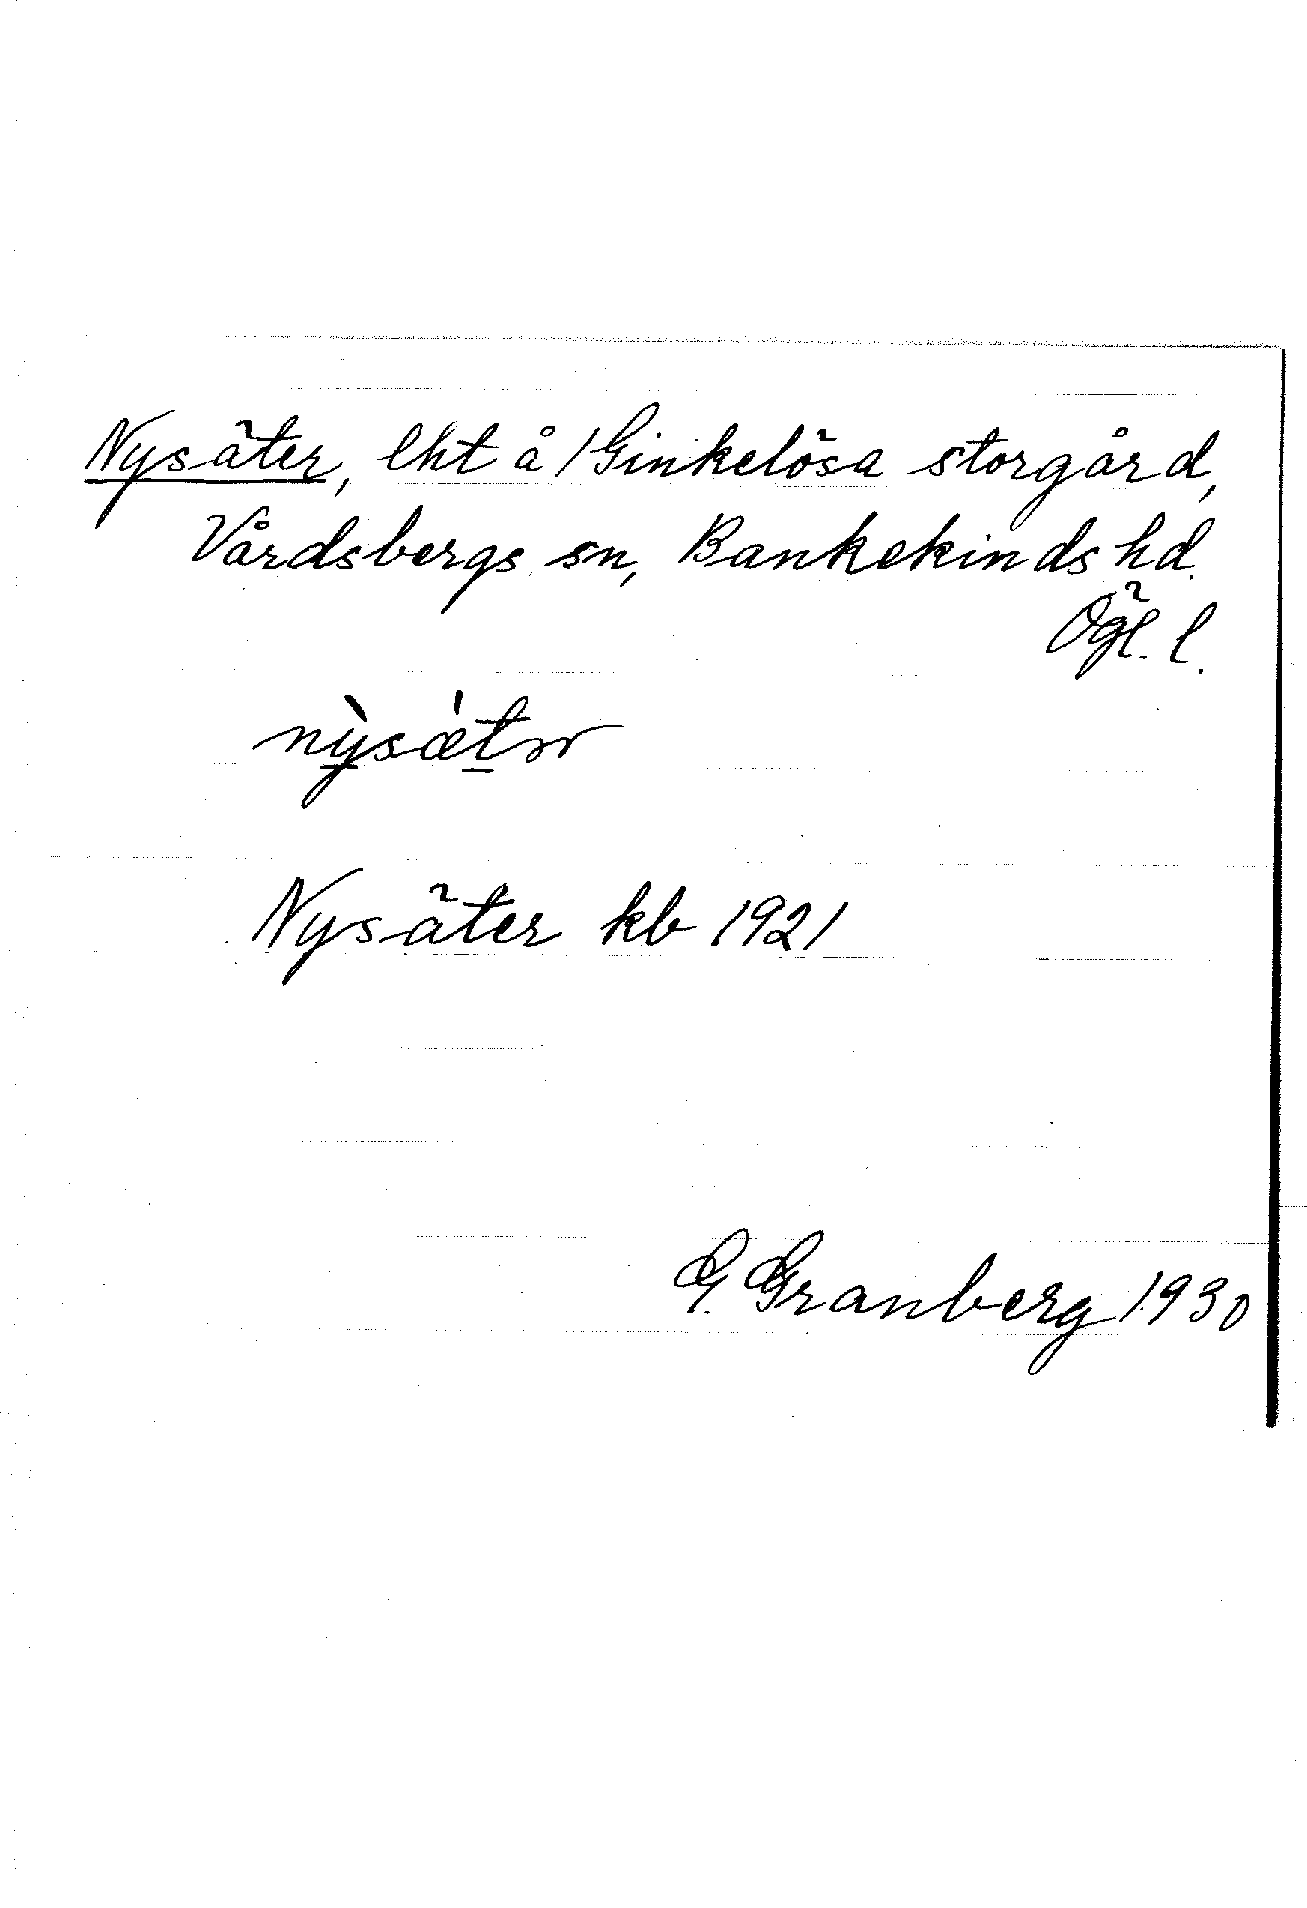 Nysäter, lht å /Ginkelösa storgård,
Vårdsbergs sn, Bankekinds hd.
Ögl. l.
nỳsætər
Nysäter kb 1921
G. Granberg 1930